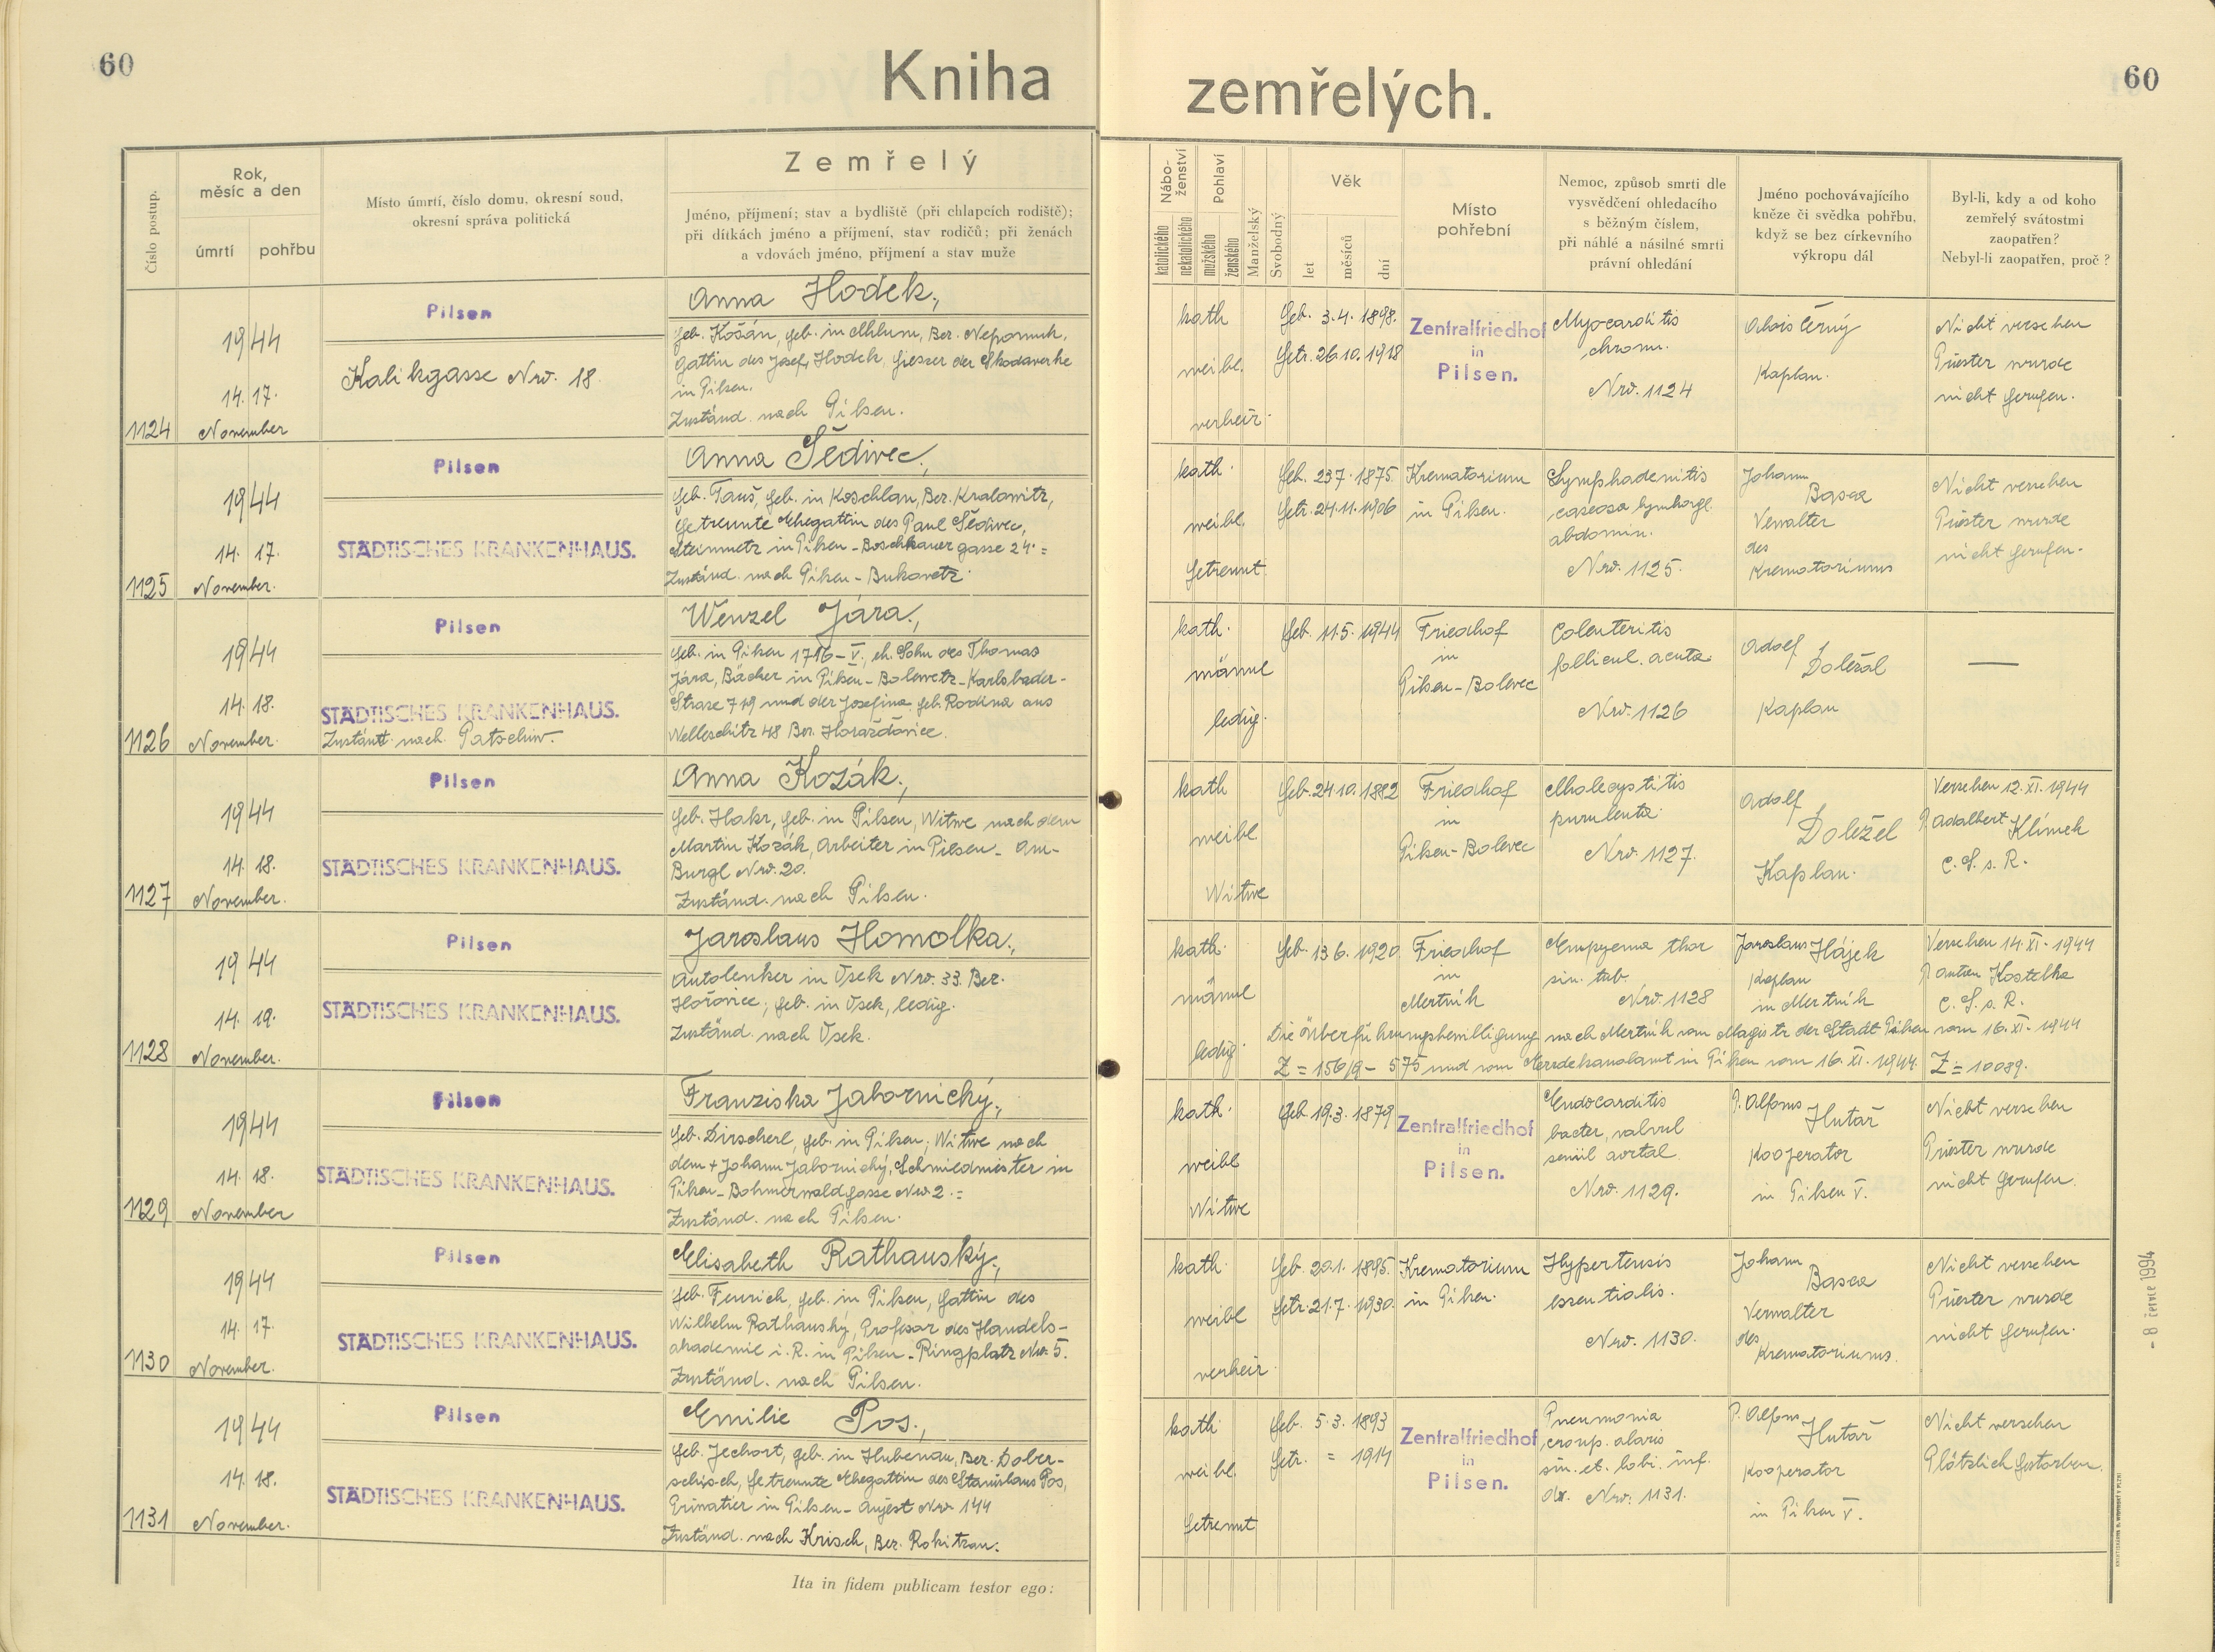 60
Kniha
zemřelých.
60
Číslo postup.
Rok,
měsíc a den
úmrtí
pohřbu
Místo úmrtí, číslo domu, okresní soud,
okresní správa politická
Zemřelý
Jméno, příjmení; stav a bydliště (při chlapcích rodiště);
při dítkách jméno a příjmení, stav rodičů; při ženách
a vdovách jméno, příjmení a stav muže
Nábo-
ženství
katolického
nekatolického
Pohlaví
mužského
ženského
Manželský
Svobodný
Věk
let
měsíců
dní
Místo
pohřební
Nemoc, způsob smrti dle
vysvědčení ohledacího
s běžným číslem,
při náhlé a násilné smrti
právní ohledání
Jméno pochovávajícího
kněze či svědka pohřbu,
když se bez církevního
výkropu dál
Byl-li, kdy a od koho
zemřelý svátostmi
zaopatřen?
Nebyl-li zaopatřen, proč?
1124
1944
14. 17.
November
Pilsen
Kalikgasse Nro. 18.
Anna Hodek,
geb. Košán, geb. in Chlum, Ber. Nepomuk,
Gattin des Josef Hodek, Giesser der Skodawerke
in Pilsen.
Zuständ. nach Pilsen.
kath
weibl.
verheir.
Geb. 3.4. 1898.
Getr. 26.10. 1918
Zentralfriedhof
in
Pilsen.
Myocarditis
chron.
Nro. 1124
Alois Černý
Kaplan.
Nicht versehen
Priester wurde
nicht gerufen.
1125
1944
14. 17.
November.
Pilsen
STÄDTISCHES KRANKENHAUS.
Anna Šedivec,
geb. Tauš, geb. in Koschlan, Ber. Kralowitz,
getrennte Ehegattin des Paul Šedivec,
Steinmetz in Pilsen - Boschkauer gasse 24. =
Zuständ. nach Pilsen - Bukawetz.
kath.
weibl.
getrennt.
Geb. 23.7. 1875.
Getr. 24.11. 1906
Krematorium
in Pilsen.
Lymphadenitis
caseosa lymhogl.
abdomin.
Nro. 1125.
Johann
Basea
Verwalter
des
Krematoriums
Nicht versehen
Priester wurde
nicht gerufen.
1126
1944
14. 18.
November.
Pilsen
STÄDTISCHES KRANKENHAUS.
Zuständ. nach Patschiw.
Wenzel Jára,
geb. in Pilsen 1716 - V., eh. Sohn des Thomas
Jára, Bäcker in Pilsen - Bolewetz - Karlsbader -
Strase 719 und der Josefina geb. Rodina aus
Welleschitz 48 Ber. Horažďovice.
kath.
männl
ledig.
Geb. 11.5. 1944
Friedhof
in
Pilsen - Bolevec
Colenteritis
follicul. acuta.
Nro. 1126
Adolf
Doležal
Kaplan
—
1127
1944
14. 18.
November.
Pilsen
STÄDTISCHES KRANKENHAUS.
Anna Kozák,
geb. Hakr, geb. in Pilsen, Witwe nach dem
Martin Kozák, Arbeiter in Pilsen - Am -
Burgl Nro. 20.
Zuständ. nach Pilsen.
kath
weibl
Witwe
Geb. 24.10. 1882
Friedhof
in
Pilsen - Bolevec
Cholecystitis
purulenta.
Nro. 1127.
Adolf
Doležel
Kaplan.
Versehen 12. XI. 1944
P. Adalbert Klimek
C. S. s. R.
1128
1944
14. 19.
November.
Pilsen
STÄDTISCHES KRANKENHAUS.
Jaroslaus Homolka,
Autolenker in Osek Nro. 33. Ber.
Hořovice; geb. in Osek, ledig.
Zuständ. nach Osek.
kath.
männl
ledig.
Geb. 13.6. 1920
Friedhof
in
Mertník
Empyema thor
sin. tub.
Nro. 1128
Jaroslaus Hájek
Kaplan
in Mertník
Versehen 14. XI. 1944
P. Anton Kostelka
C. S. s. R.
Die Überführungsbewilligung nach Mertník vom Magistr der Stadt Pilsen vom 16. XI. 1944
Z = 156/9 - 575 und vom Erzdekanalamt in Pilsen vom 16. XI. 1944. Z = 10089.
1129
1944
14. 18.
November
Pilsen
STÄDTISCHES KRANKENHAUS.
Franziska Jabornický,
geb. Dirscherl, geb. in Pilsen, Witwe nach
dem + Johann Jabornický, Schmiedmeister in
Pilsen - Böhmerwaldgasse Nro 2. =
Zuständ. nach Pilsen.
kath.
weibl
Witwe
Geb. 19.3. 1879
Zentralfriedhof
in
Pilsen.
Endocarditis
bacter, valvul
seniil aortal
Nro. 1129.
P. Alfons Hutař
Kooperator
in Pilsen V.
Nicht versehen
Priester wurde
nicht gerufen.
1130
1944
14. 17.
November.
Pilsen
STÄDTISCHES KRANKENHAUS.
Elisabeth Rathauský,
geb. Fenrich, geb. in Pilsen, Gattin des
Wilhelm Rathauský, Profesor des Handels -
akademie i. R. in Pilsen - Ringplatz Nro. 5.
Zuständ. nach Pilsen.
kath.
weibl
verheir.
Geb. 20.1. 1895.
Getr. 21.7. 1930.
Krematorium
in Pilsen.
Hypertensis
essentialis.
Nro. 1130.
Johann
Basea
Verwalter
des
Krematoriums.
Nicht versehen
Priester wurde
nicht gerufen.
1131
1944
14. 18.
November.
Pilsen
STÄDTISCHES KRANKENHAUS.
Emilie Pos,
geb. Jechort, geb. in Hubenau, Ber. Dober-
schisch, getrennte Ehegattin des Stanislaus Pos,
Privatier in Pilsen - Aujest Nro 144
Zuständ. nach Krisch, Ber. Rokitzan.
kath
weibl.
getrennt
Geb. 5.3. 1893
Getr. = 1914
Zentralfriedhof
in
Pilsen.
Pneumonia
croup. alaris
sin. et. lobi. inf.
dx. Nro: 1131.
P. Alfons Hutař
Kooperator
in Pilsen V.
Nicht versehen
Plötzlich gestorben.
Ita in fidem publicam testor ego:
- 8 červe 1994